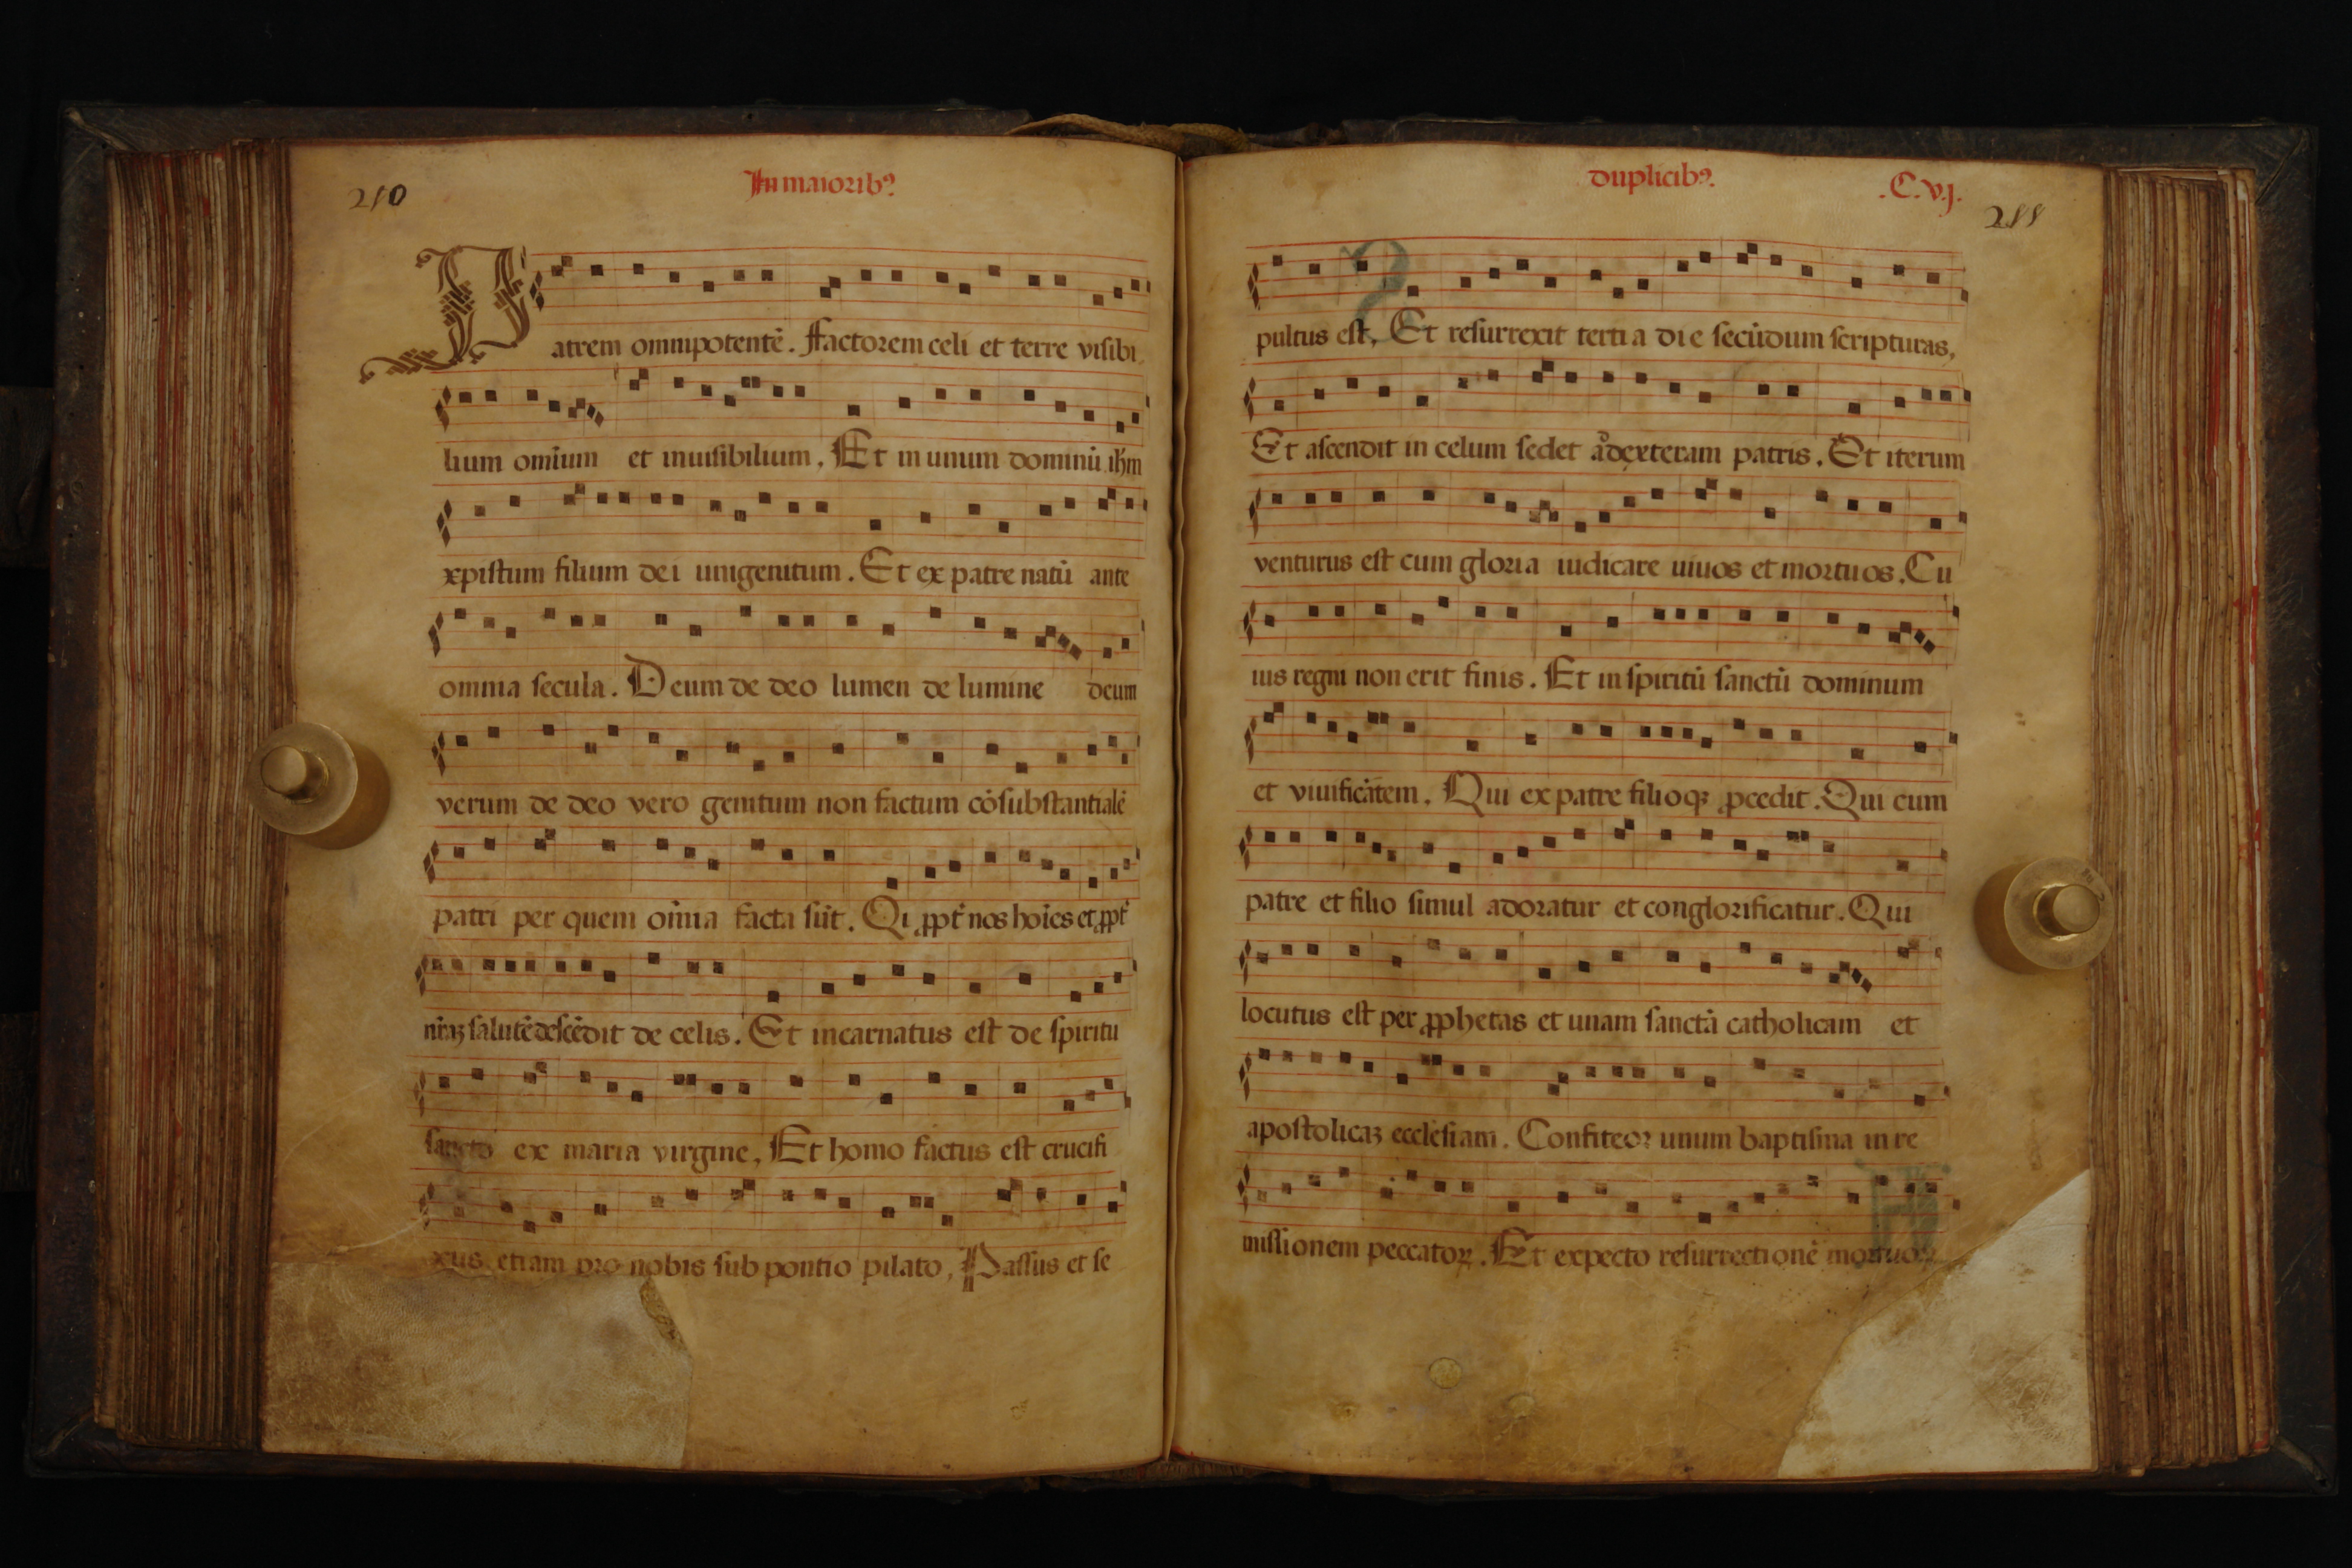 210
In maioribꝰ
Patrem omnipotentē. Factorem celi et terre visibi
lium omīum et inuisibilium, Et in unum dominū ihm
xpistum filium dei unigenitum. Et ex patre natū ante
omnia secula. Deum de deo lumen de lumine deum
verum de deo vero genitum non factum cōsubstantialē
patri per quem oīnia facta sūt. Qi ꝓpt nos hoīes et ꝓpt
nr̄aꝫ salutē descēdit de celis. Et incarnatus est de spiritu
sancto ex maria virgine, Et homo factus est crucifi
xus etiam pro nobis sub pontio pilato, Passus et se
duplicibꝰ.
.C.vj.
211
pultus est, Et resurrexit tertia die secūdum scripturas,
Et ascendit in celum sedet ad dexteram patris. Et iterum
venturus est cum gloria iudicare uiuos et mortuos. Cu
ius regni non erit finis. Et in spiritū sanctū dominum
et viuificātem. Qui ex patre filioqꝫ ꝓcedit. Qui cum
patre et filio simul adoratur et conglorificatur. Qui
locutus est per ꝓphetas et unam sanctā catholicam et
apostolicaꝫ ecclesiam. Confiteor unum baptisma in re
missionem peccatoꝝ. Et expecto resurrectionē mortuoꝝ